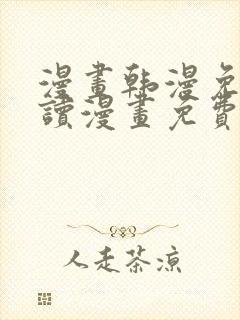 漫畫韩漫免
讀漫畫免費
人走茶凉